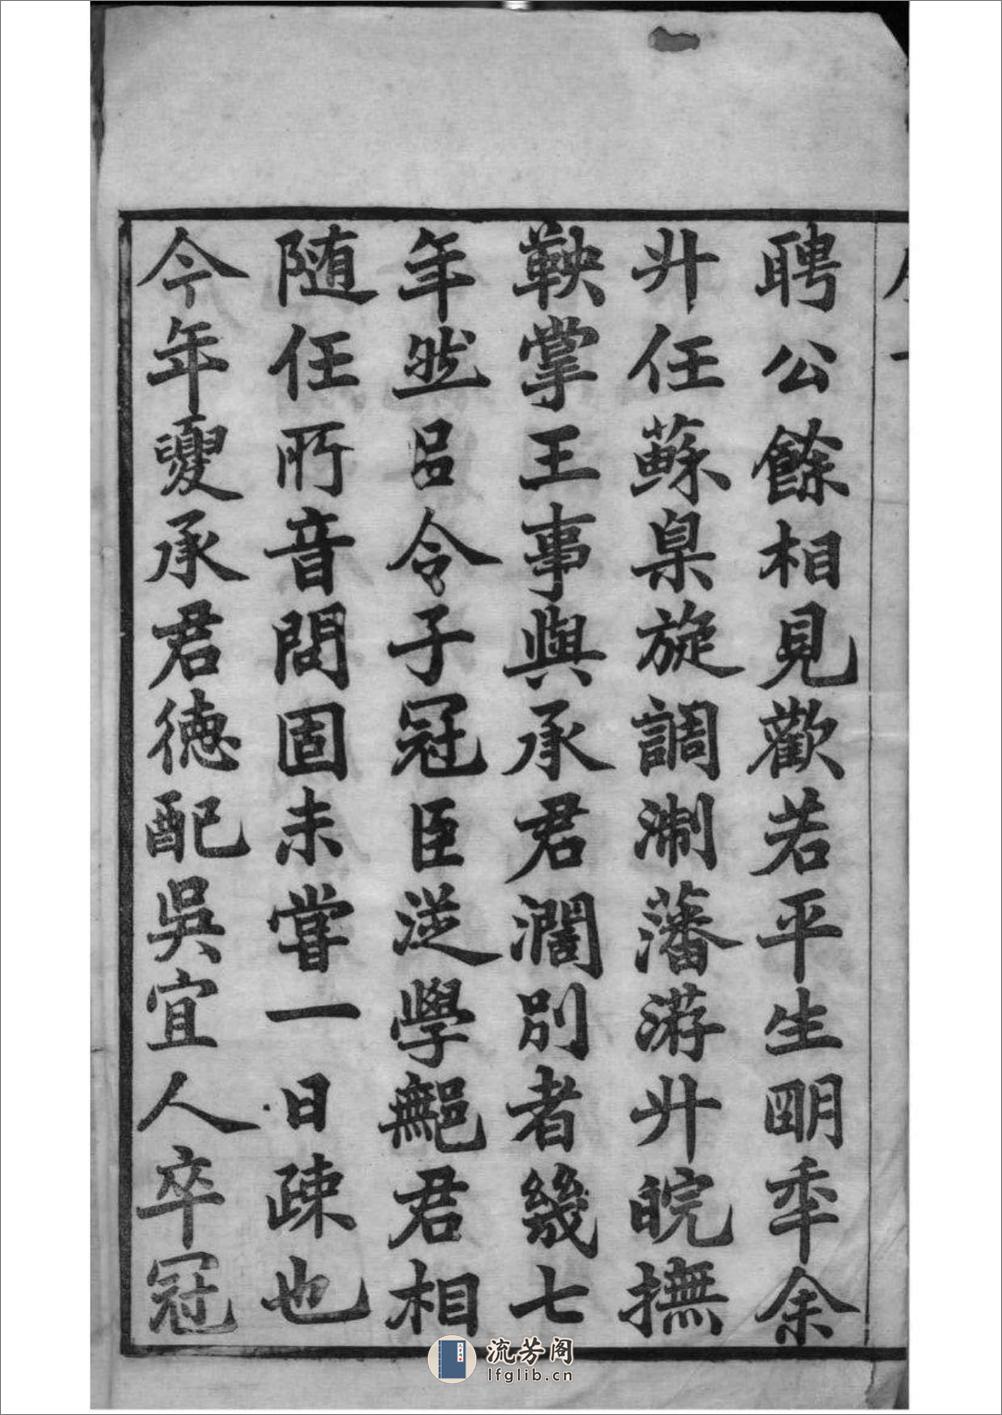 聘公餘相見歡若平生朙秊余
升任蘇臬旋調淛藩游升皖撫
鞅掌王事與承君濶別者幾七
年然㠯令子冠臣從學鄦君相
随任所音問固未嘗一日疎也
今年夏承君德配吳宜人卒冠
流芳阁
lfglib.cn